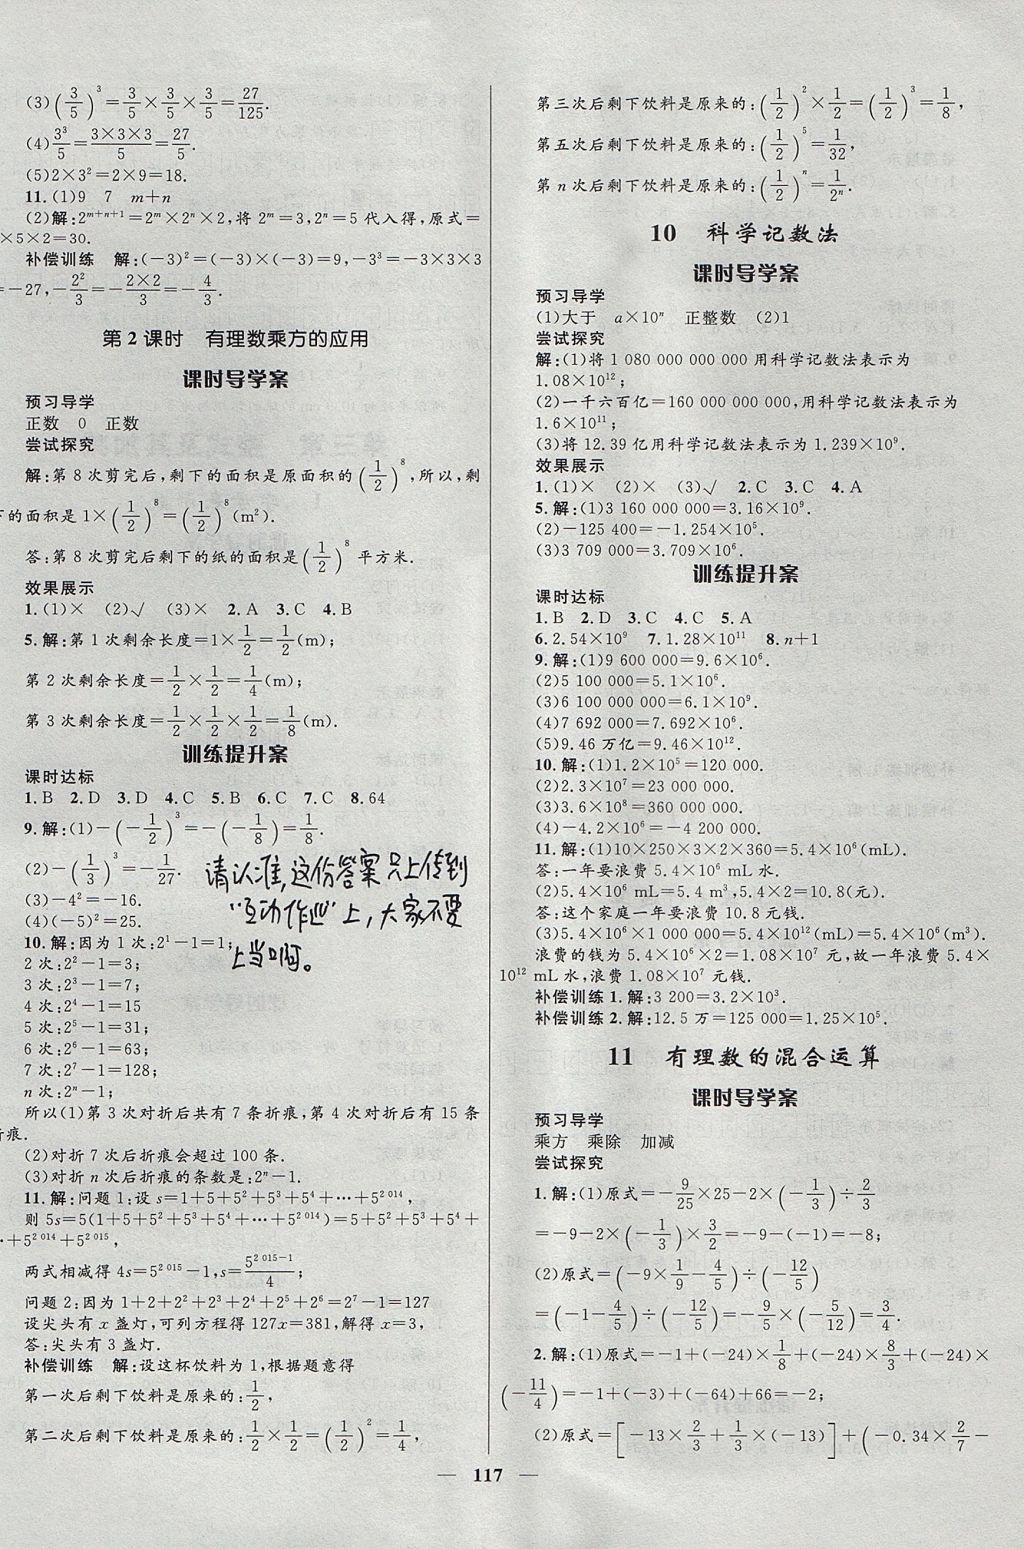 (3)(3/5)³=3/5×3/5×3/5=27/125.
(4)3³/5=(3×3×3)/5=27/5.
(5)2×3²=2×9=18.
11.(1)9 7 m+n
(2)解:2ᵐ⁺ⁿ⁺¹=2ᵐ×2ⁿ×2,将 2ᵐ=3,2ⁿ=5 代入得,原式=
×5×2=30.
补偿训练 解:(-3)²=(-3)×(-3)=9,-3³=-3×3×3
=-27,-2²/3=-(2×2)/3=-4/3.
第 2 课时 有理数乘方的应用
课时导学案
预习导学
正数 0 正数
尝试探究
解:第 8 次剪完后,剩下的面积是原面积的(1/2)⁸,所以,剩
下的面积是 1×(1/2)⁸=(1/2)⁸(m²).
答:第 8 次剪完后剩下的纸的面积是(1/2)⁸平方米.
效果展示
1.(1)× (2)√ (3)× 2.A 3.C 4.B
5.解:第 1 次剩余长度=1×1/2=1/2(m);
第 2 次剩余长度=1/2×1/2=1/4(m);
第 3 次剩余长度=1/2×1/2×1/2=1/8(m).
训练提升案
课时达标
1.B 2.D 3.D 4.C 5.B 6.C 7.C 8.64
9.解:(1)-(-1/2)³=-(-1/8)=1/8.
(2)-(1/3)³=-1/27.
(3)-4²=-16.
(4)(-5)²=25.
请认准,这份答案只上传到
"互动作业"上,大家不要
上当啊。
10.解:因为 1 次:2¹-1=1;
2 次:2²-1=3;
3 次:2³-1=7;
4 次:2⁴-1=15
5 次:2⁵-1=31;
6 次:2⁶-1=63;
7 次:2⁷-1=128;
n 次:2ⁿ-1;
所以(1)第 3 次对折后共有 7 条折痕,第 4 次对折后有 15 条
折痕.
(2)对折 7 次后折痕会超过 100 条.
(3)对折 n 次后折痕的条数是:2ⁿ-1.
11.解:问题 1:设 s=1+5+5²+5³+5⁴+⋯+5²⁰¹⁴,
则 5s=5(1+5+5²+5³+5⁴+⋯+5²⁰¹⁴)=5+5²+5³+5⁴+
⋯+5²⁰¹⁴+5²⁰¹⁵,
两式相减得 4s=5²⁰¹⁵-1,s=5²⁰¹⁵⁻¹/4;
问题 2:因为 1+2+2²+2³+2⁴+2⁵+2⁶=2⁷-1=127
设尖头有 x 盏灯,可列方程得 127x=381,解得 x=3,
答:尖头有 3 盏灯.
补偿训练 解:设这杯饮料为 1,根据题意得
第一次后剩下饮料是原来的:1/2,
第二次后剩下饮料是原来的:1/2×1/2=(1/2)²=1/4,
第三次后剩下饮料是原来的:(1/2)²×1/2=(1/2)³=1/8,
第五次后剩下饮料是原来的:(1/2)⁵=1/32,
第 n 次后剩下饮料是原来的:(1/2)ⁿ=1/2ⁿ.
10 科学记数法
课时导学案
预习导学
(1)大于 a×10ⁿ 正整数 (2)1
尝试探究
解:(1)将 1 080 000 000 000 用科学记数法表示为
1.08×10¹²;
(2)一千六百亿=160 000 000 000,用科学记数法表示为
1.6×10¹¹;
(3)将 12.39 亿用科学记数法表示为 1.239×10⁹.
效果展示
1.(1)× (2)× (3)√ 2.C 3.C 4.A
5.解:(1)3 160 000 000=3.16×10⁹.
(2)-125 400=-1.254×10⁵.
(3)3 709 000=3.709×10⁶.
训练提升案
课时达标
1.B 2.D 3.C 4.C 5.A
6.2.54×10⁹ 7.1.28×10¹¹ 8.n+1
9.解:(1)9 600 000=9.6×10⁶.
(2)5 100 000=5.1×10⁶.
(3)6 100 000 000=6.1×10⁹.
(4)7 692 000=7.692×10⁶.
(5)9.46 万亿=9.46×10¹².
10.解:(1)1.2×10⁵=120 000.
(2)2.3×10⁷=23 000 000.
(3)3.6×10⁸=360 000 000.
(4)-4.2×10⁶=-4 200 000.
11.解:(1)10×250×3×2×360=5.4×10⁶(mL).
答:一年要浪费 5.4×10⁶ mL 水.
(2)5.4×10⁶ mL=5.4 m³,5.4×2=10.8(元).
答:这个家庭一年要浪费 10.8 元钱.
(3)5.4×10⁶×1 000 000=5.4×10¹²(mL)=5.4×10⁶(m³).
浪费的钱为 5.4×10⁶×2=1.08×10⁷元,故一年浪费 5.4×
10¹² mL 水,浪费 1.08×10⁷ 元钱.
补偿训练 1.解:3 200=3.2×10³.
补偿训练 2.解:12.5 万=125 000=1.25×10⁵.
11 有理数的混合运算
课时导学案
预习导学
乘方 乘除 加减
尝试探究
1.解:(1)原式=-9/25×25-2×(-1/3)÷2/3
=-9-2×(-1/3)×3/2=-9-(-1)=-8;
(2)原式=(-9×1/9-4/5)÷(-12/5)
=(-1-4/5)÷(-12/5)=-9/5×(-5/12)=3/4.
2.解:(1)原式=-1+(-24)×1/8+(-24)×8/3+(-24)×
(-11/4)=-1+(-3)+(-64)+66=-2;
(2)原式=[-13×2/3+1/3×(-13)]+(-0.34×2/7-
117